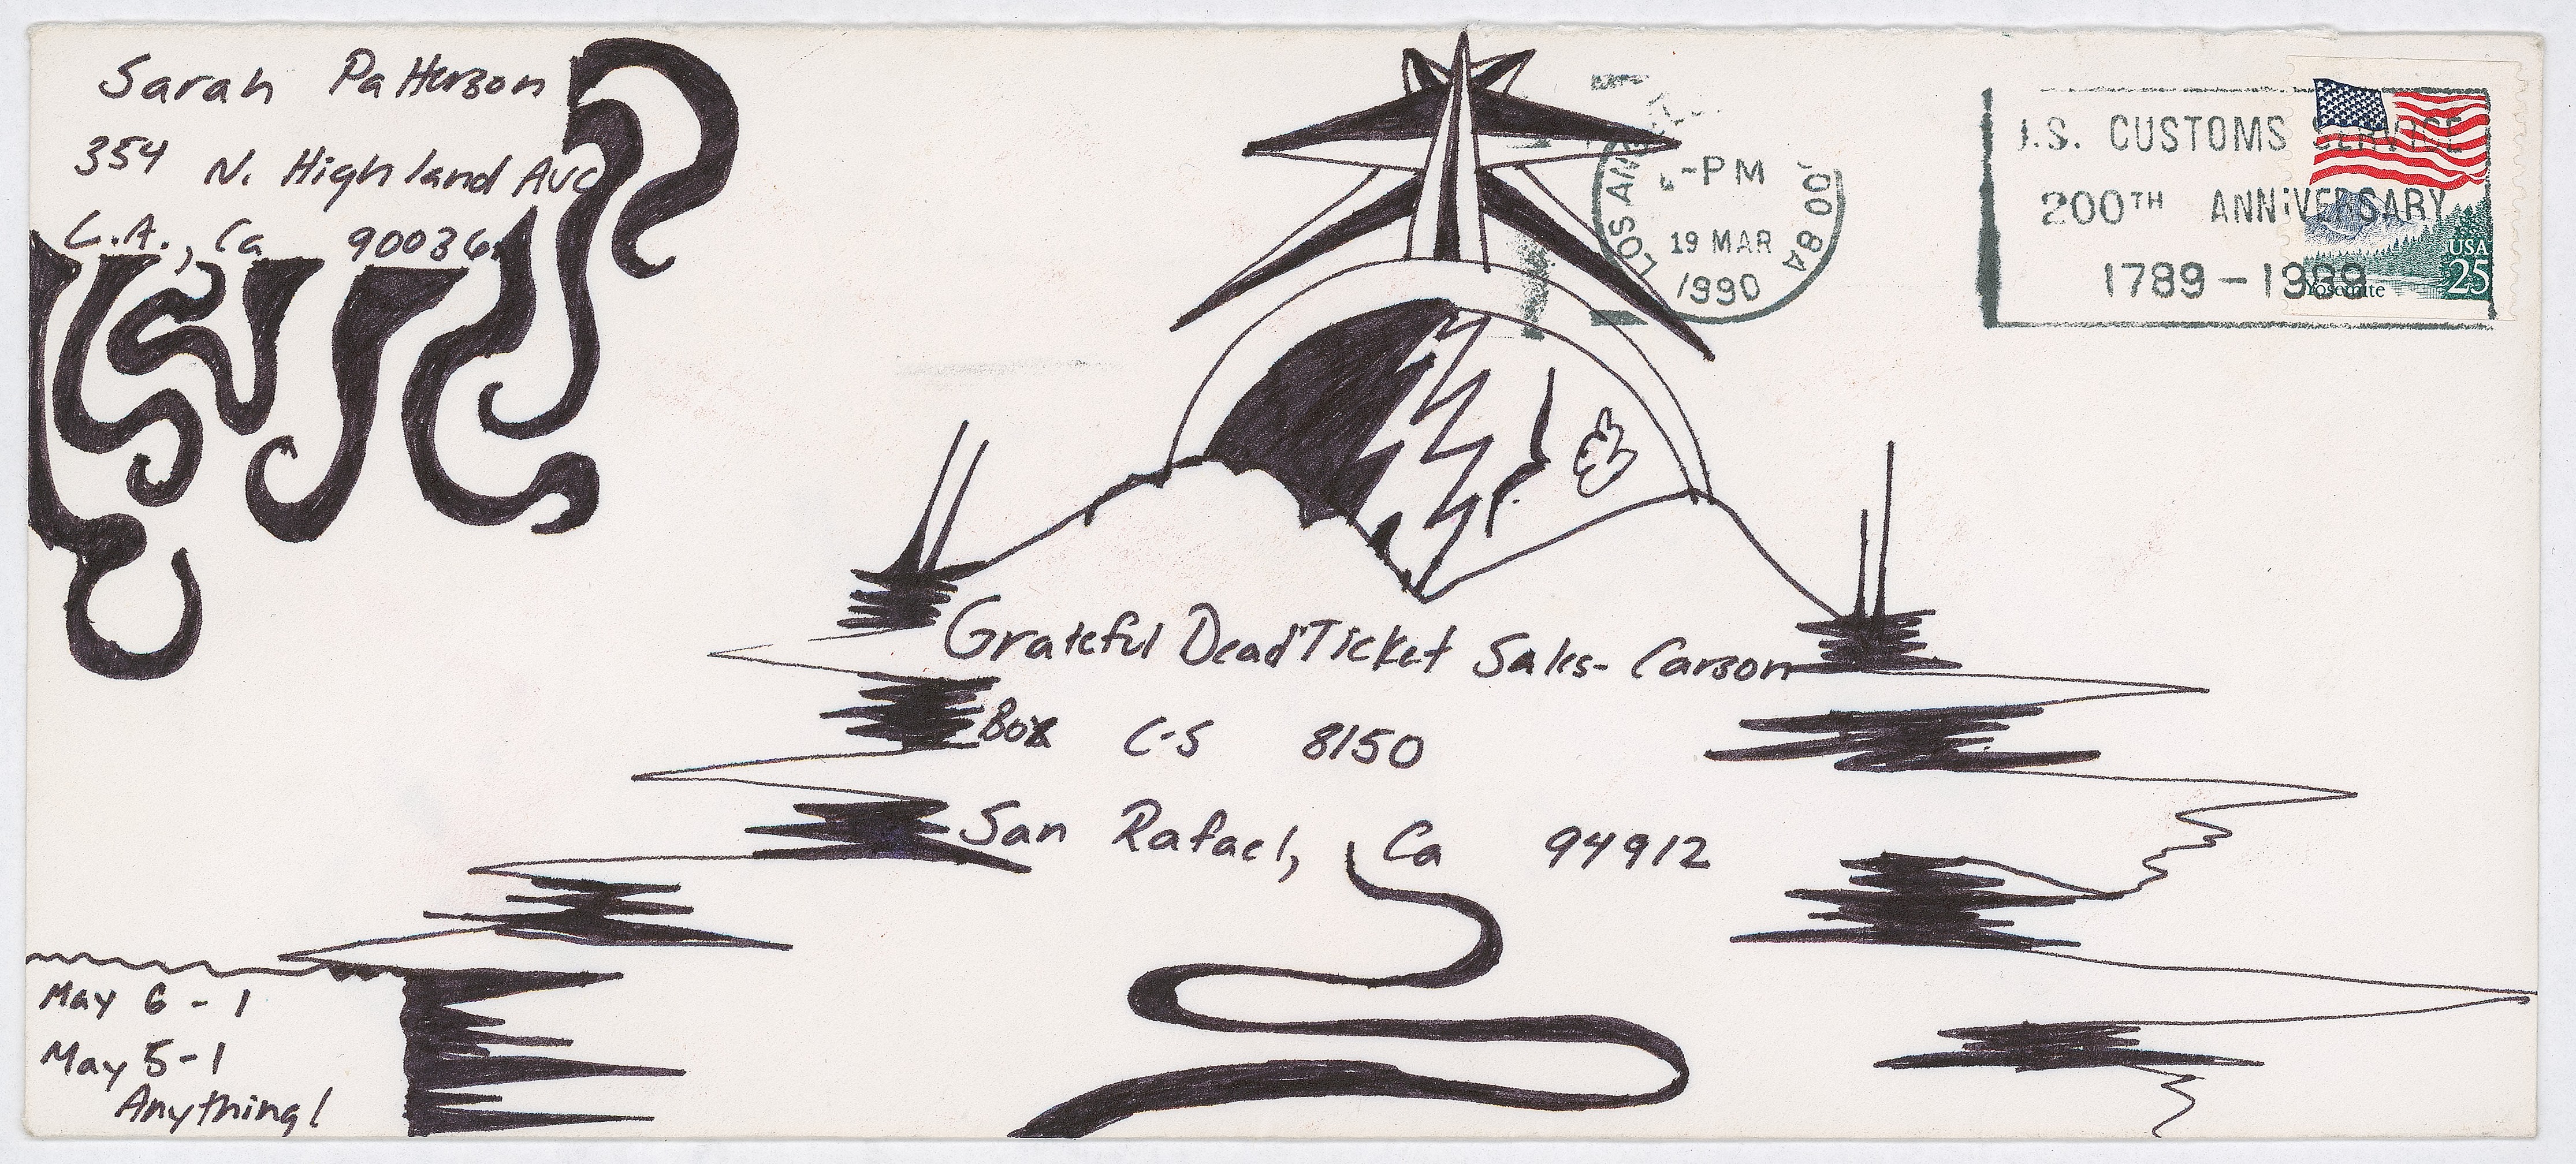 Sarah Patterson
354 N. Highland Ave
L.A., Ca 90036
LOS ANGEL
-PM
19 MAR
1990
CA 900
U.S. CUSTOMS SERVICE
200TH ANNIVERSARY
1789-1989
USA
25
Yosemite
Grateful Dead Ticket Sales- Carson
Box C-S 8150
San Rafael, Ca 94912
May 6 - 1
May 5 - 1
Anything!